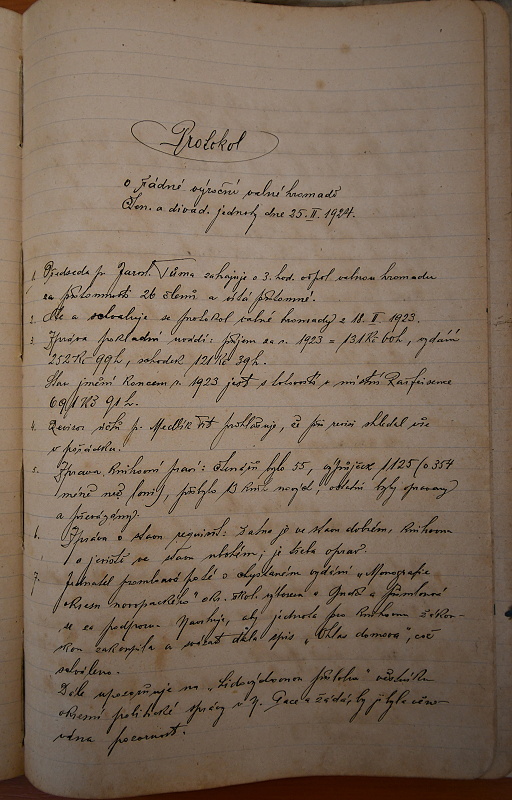 Protokol
o řádné výroční valné hromadě
Čten. a divad. jednoty dne 25. II. 1924.
1. Předseda p. Jarosl. Tůma zahajuje o 3. hod. odpol. valnou hromadu
za přítomnosti 26 členů a vítá přítomné.
2. Čte a schvaluje se protokol valné hromady z 18. II. 1923.
3. Zpráva pokladní uvádí: příjem za r. 1923 = 131 Kč 60 h, vydání
252 Kč 99 h, schodek 121 Kč 39 h.
Stav jmění koncem r. 1923 jest s hotovostí v místní Raifeisence
691 Kč 91 h.
4. Revisor účtů p. Medlík Vít prohlašuje, že při revisi shledal vše
v pořádku.
5. Zpráva knihovní praví: čtenářů bylo 55, výpůjček 1125 (o 354
méně než loni), přibylo knih, ostatní byly opraveny
a převázány.
6. Zpráva o stavu requisit: je ve stavu dobrém, knihovna
a jeviště ve stavu ubohém; je třeba oprav.
7. Jednatel promlouvá poté o chystaném vydání „Monografie
okresu novopackého" a přimlouvá
se za podporu. Navrhuje, aby jednota pro knihovnu
zakoupila a svázat dala spis „Ohlas domova", což
schváleno.
Dále upozorňuje na „Lidovýchovnou přílohu" věstníku
okresní politické správy v N. Pace a žádá, by jí byla věno-
vána pozornost.